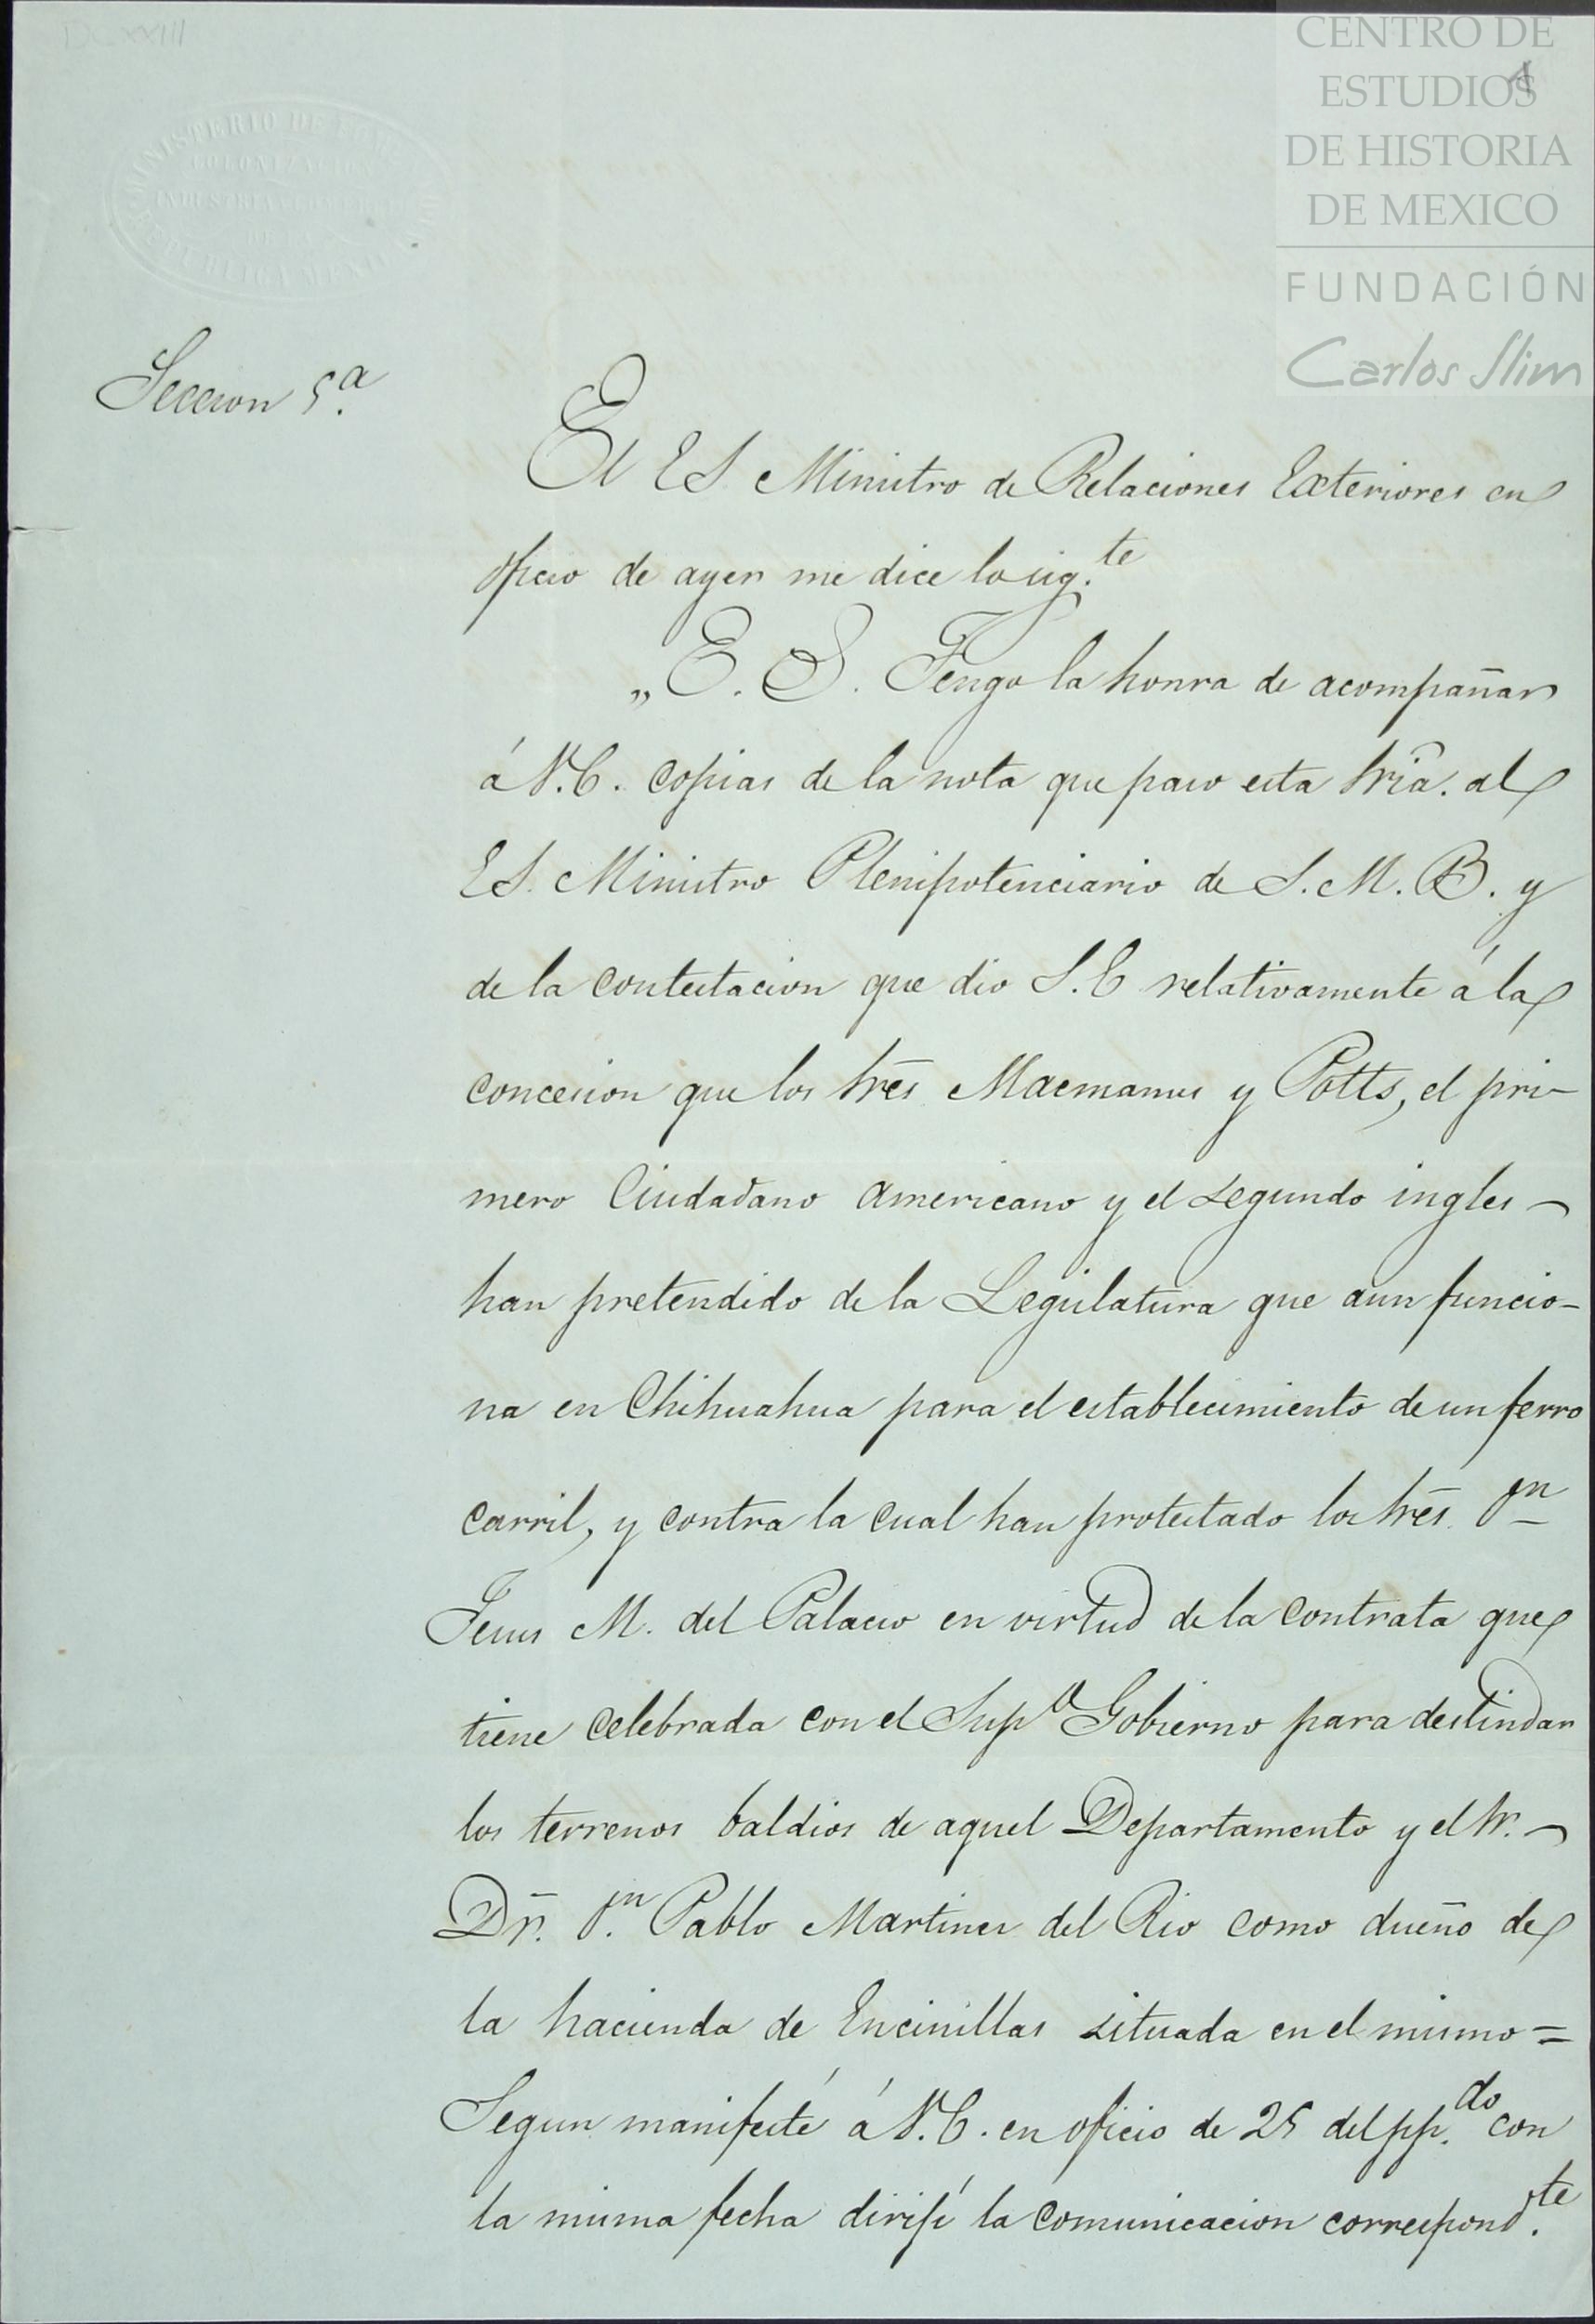 DCXXIII
CENTRO DE
ESTUDIOS
DE HISTORIA
DE MEXICO
FUNDACIÓN
Carlos Slim
1
MINISTERIO DE FOMENTO
COLONIZACION
INDUSTRIA Y COMERCIO
DE LA
REPUBLICA MEXICANA
Seccion 5.ª
El ES. Ministro de Relaciones Exteriores en
oficio de ayer me dice lo sig.te
„E. S. Tengo la honra de acompañar
á V.E. copias de la nota que paso esta Sria. al
ES. Ministro Plenipotenciario de S. M. B. y
de la contestacion que dio S.E relativamente á la
concesion que los Sres Macmanus y Potts, el pri-
mero Ciudadano americano y el segundo ingles
han pretendido de la Legislatura que aun funcio-
na en Chihuahua para el establecimiento de un ferro
carril, y contra la cual han protestado los Sres. Dn
Jesus M. del Palacio en virtud de la contrata que
tiene celebrada con el Sup.o Gobierno para deslindar
los terrenos baldios de aquel Departamento y el Sr.
Dr. D.n Pablo Martinez del Rio como dueño de
la hacienda de Encinillas situada en el mismo =
Segun manifesté á V.E. en oficio de 25 del pp.do con
la misma fecha dirijí la comunicacion correspond.te